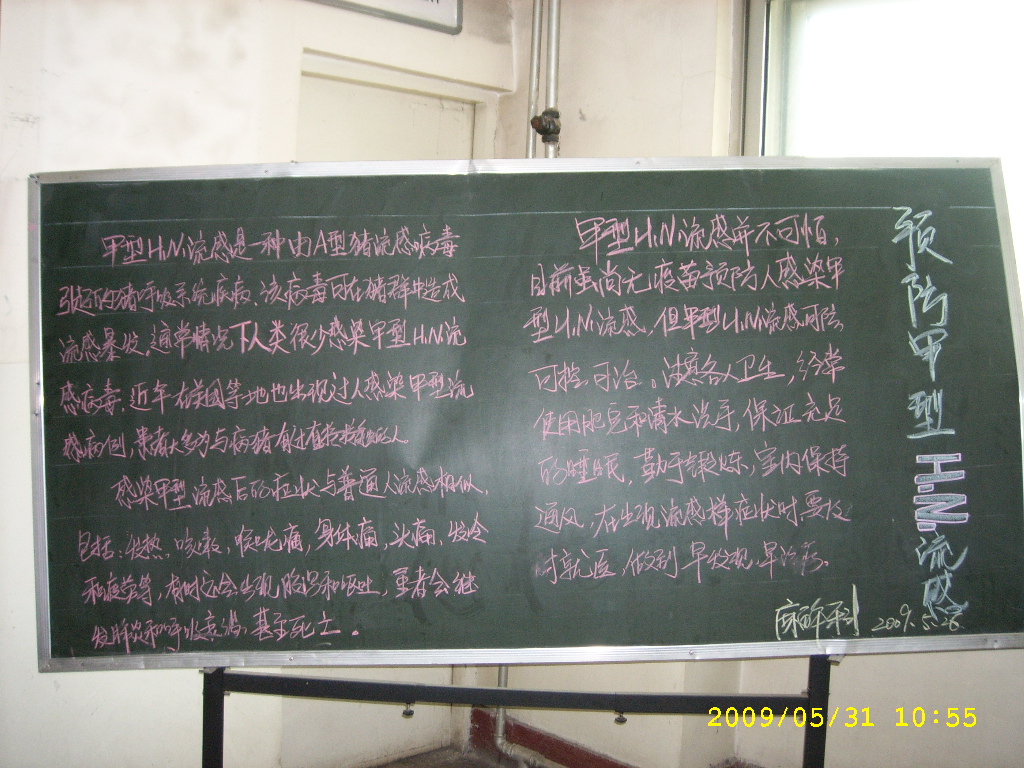 甲型H1N1流感是一种由A型猪流感病毒
引起的猪呼吸系统疾病，该病毒可在猪群中造成
流感暴发。通常情况下人类很少感染甲型H1N1流
感病毒。近年在美国等地也出现过人感染甲型流
感病例，患者大多为与病猪有过直接接触的人。
感染甲型流感后的症状与普通人流感相似，
包括：发热、咳嗽、喉咙痛、身体痛、头痛、发冷
和疲劳等，有时还会出现腹泻和呕吐，重者会继
发肺炎和呼吸衰竭，甚至死亡。
甲型H1N1流感并不可怕，
目前虽尚无疫苗预防人感染甲
型H1N1流感，但甲型H1N1流感可防、
可控、可治。注意个人卫生，经常
使用肥皂和清水洗手，保证充足
的睡眠，勤于锻炼，室内保持
通风，在出现流感样症状时，要及
时就医，做到早发现，早治疗。
预防甲型H1N1流感
麻醉科
2009.5.26
2009/05/31 10:55